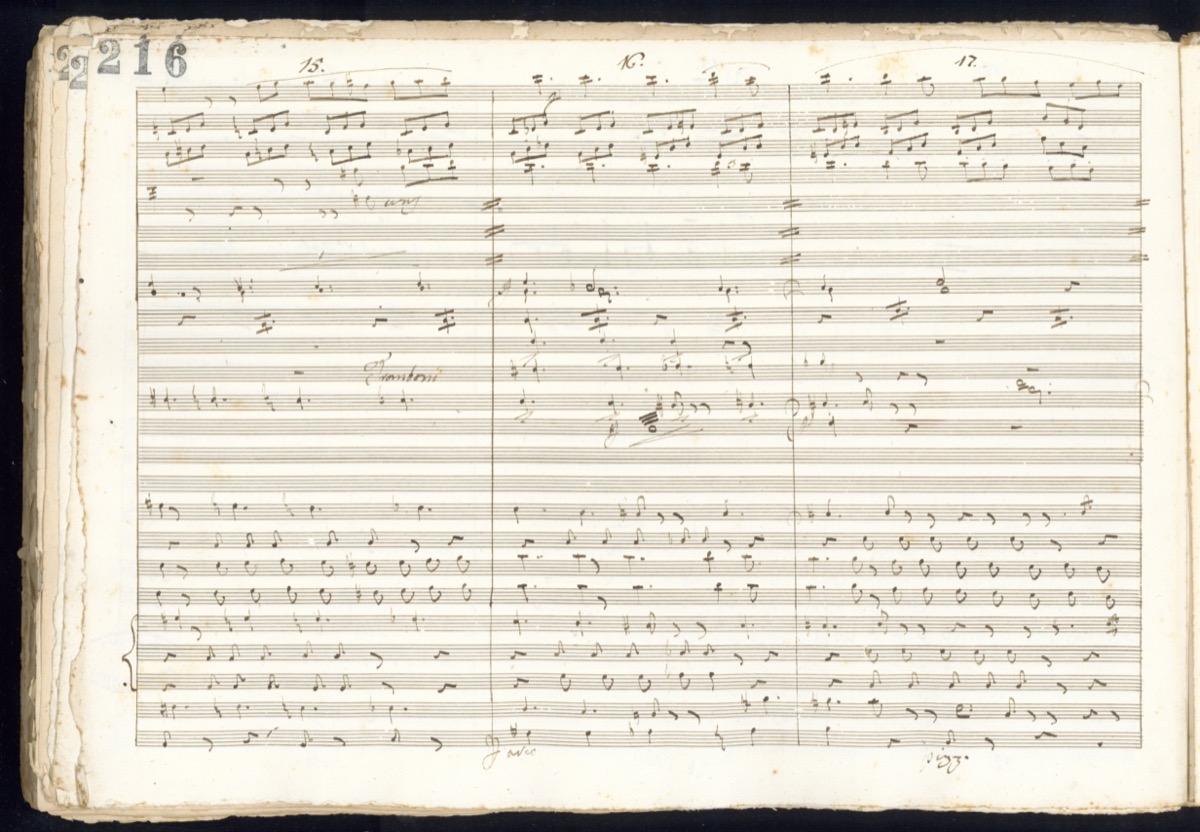 216
15. 16. 17.
Tromboni
pizz.